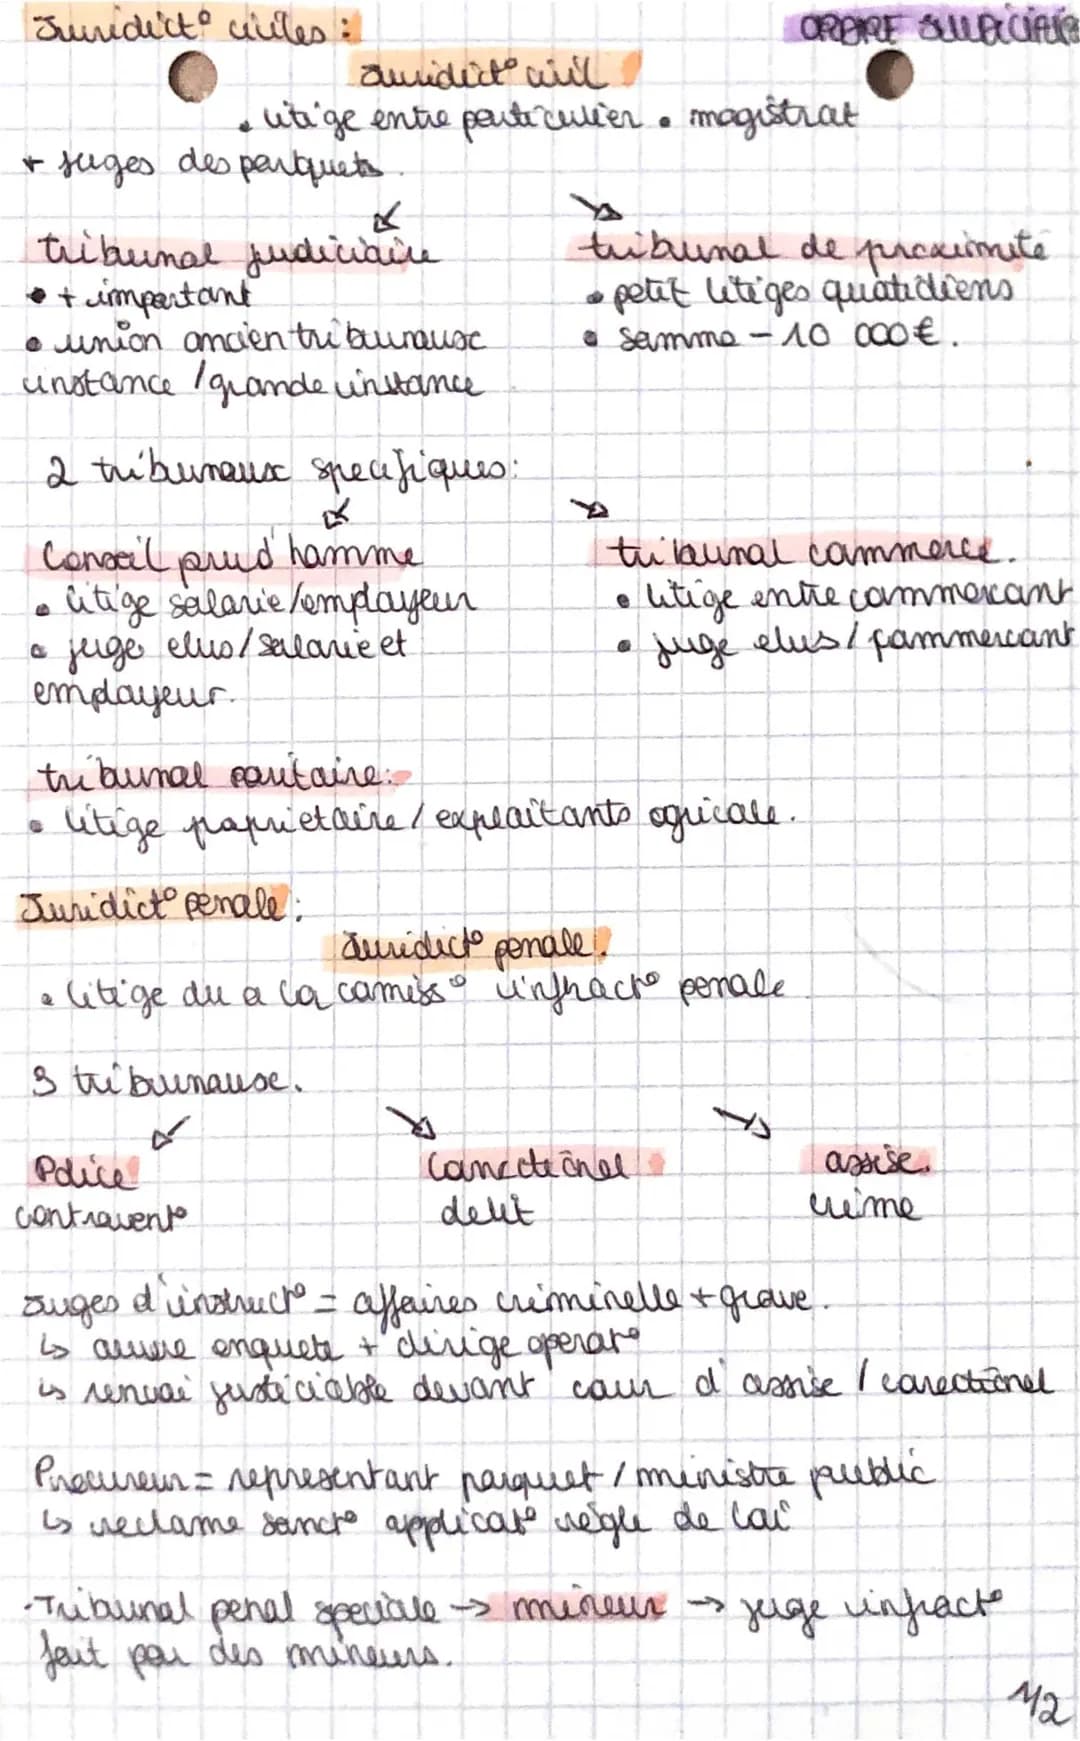 Juridict° civiles : ORDRE JUDICIAIRE
Juridict° civil
• litige entre particulier • magistrat
+ juges des parquets.
tribunal judiciaire
• + important
• union ancien tribunaux
instance / grande instance
tribunal de proximité
• petit litiges quotidiens
• somme - 10 000€.
2 tribunaux specifiques:
Conseil prud'homme
• litige salarie/employeur
• juge elus/salarie et
employeur.
tribunal commerce.
• litige entre commercant
• juge elus / commercant
tribunal rautaire:
• litige proprietaire / exploitants agricole.
Juridict° penale :
Juridict° penale.
• litige du a la comiss° infract° penale
3 tribunaux.
Police
contravent°
Correctionel
delit
assise.
crime
Juges d'instruct° = affaires criminelle + grave.
↳ ouvre enquete + dirige operat°
↳ renvoi justiciable devant cour d'assise / corectionel
Procureur = representant parquet / ministre public
↳ reclame sanct° applicat° règle de loi
-Tribunal penal speciale → mineur → juge infract°
fait par des mineurs.
1/2